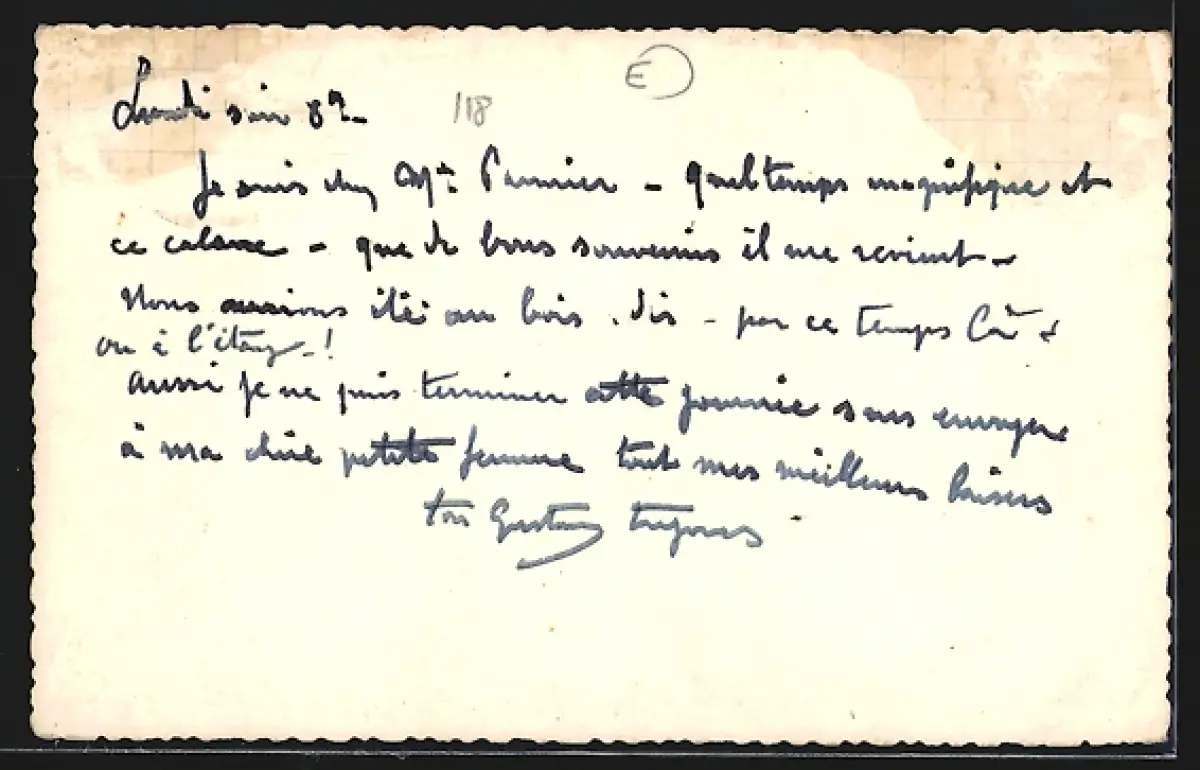 Lundi soir 8h
118
E
Je suis chez Mr Pannier - Quel temps magnifique et
ce calme - que de bons souvenirs il me revient -
Nous aurions été au bois, dis - par ce temps là
ou à l'étang - !
aussi je ne puis terminer cette journée sans envoyer
à ma chère petite femme tout mes meilleurs baisers
ton Gustave toujours